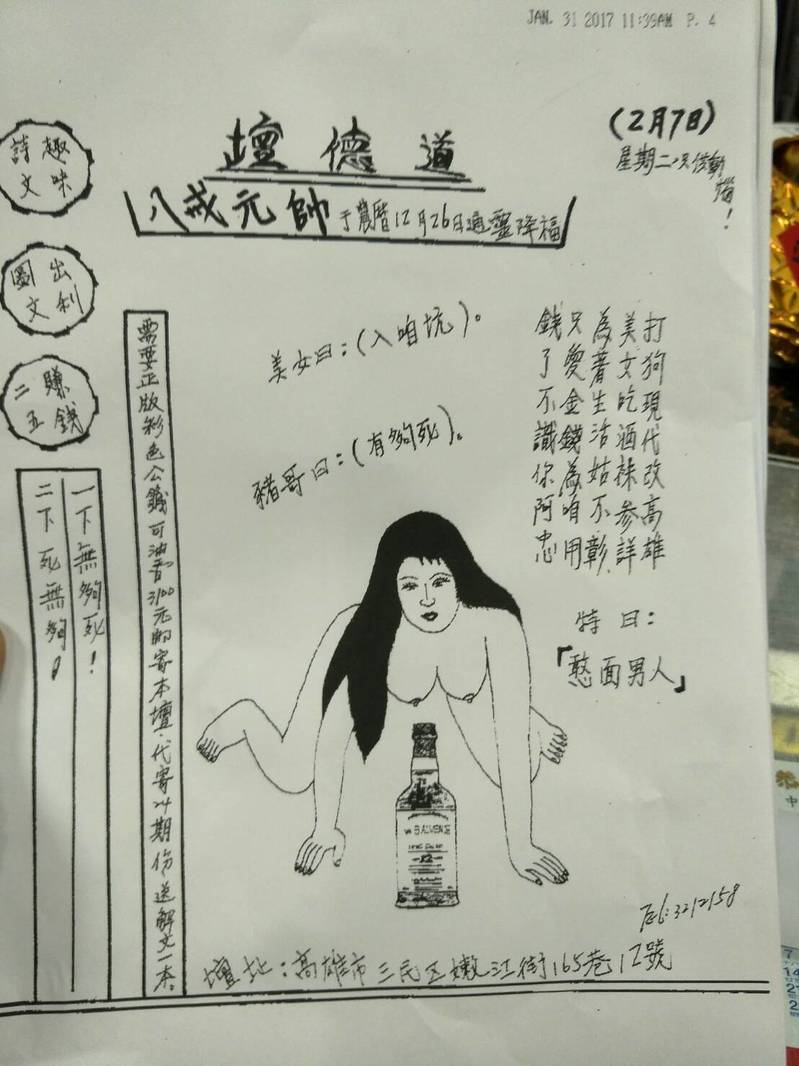 JAN. 31 2017 11:39AM P. 4
(2月7日)
星期二
道德壇
八戒元帥于農曆12月26日通靈降福
趣味詩文
出刋圖文
賺錢二五
一下無夠死!
二下死無夠!
需要正版彩色公籤可油寄3100元
寄本壇.代寄24期份,送解文一本。
美女曰:(入咱坑)。
豬哥曰:(有夠死)。
打狗現代改高雄
美女吃酒袜參詳
為著生活姑不彰
只愛金錢為咱用
錢了不識你阿忠
特曰:
「憨面男人」
BALVENIE
12
Tel:3212158
壇址:高雄市三民区嫩江街165巷12號
7
14
21
中